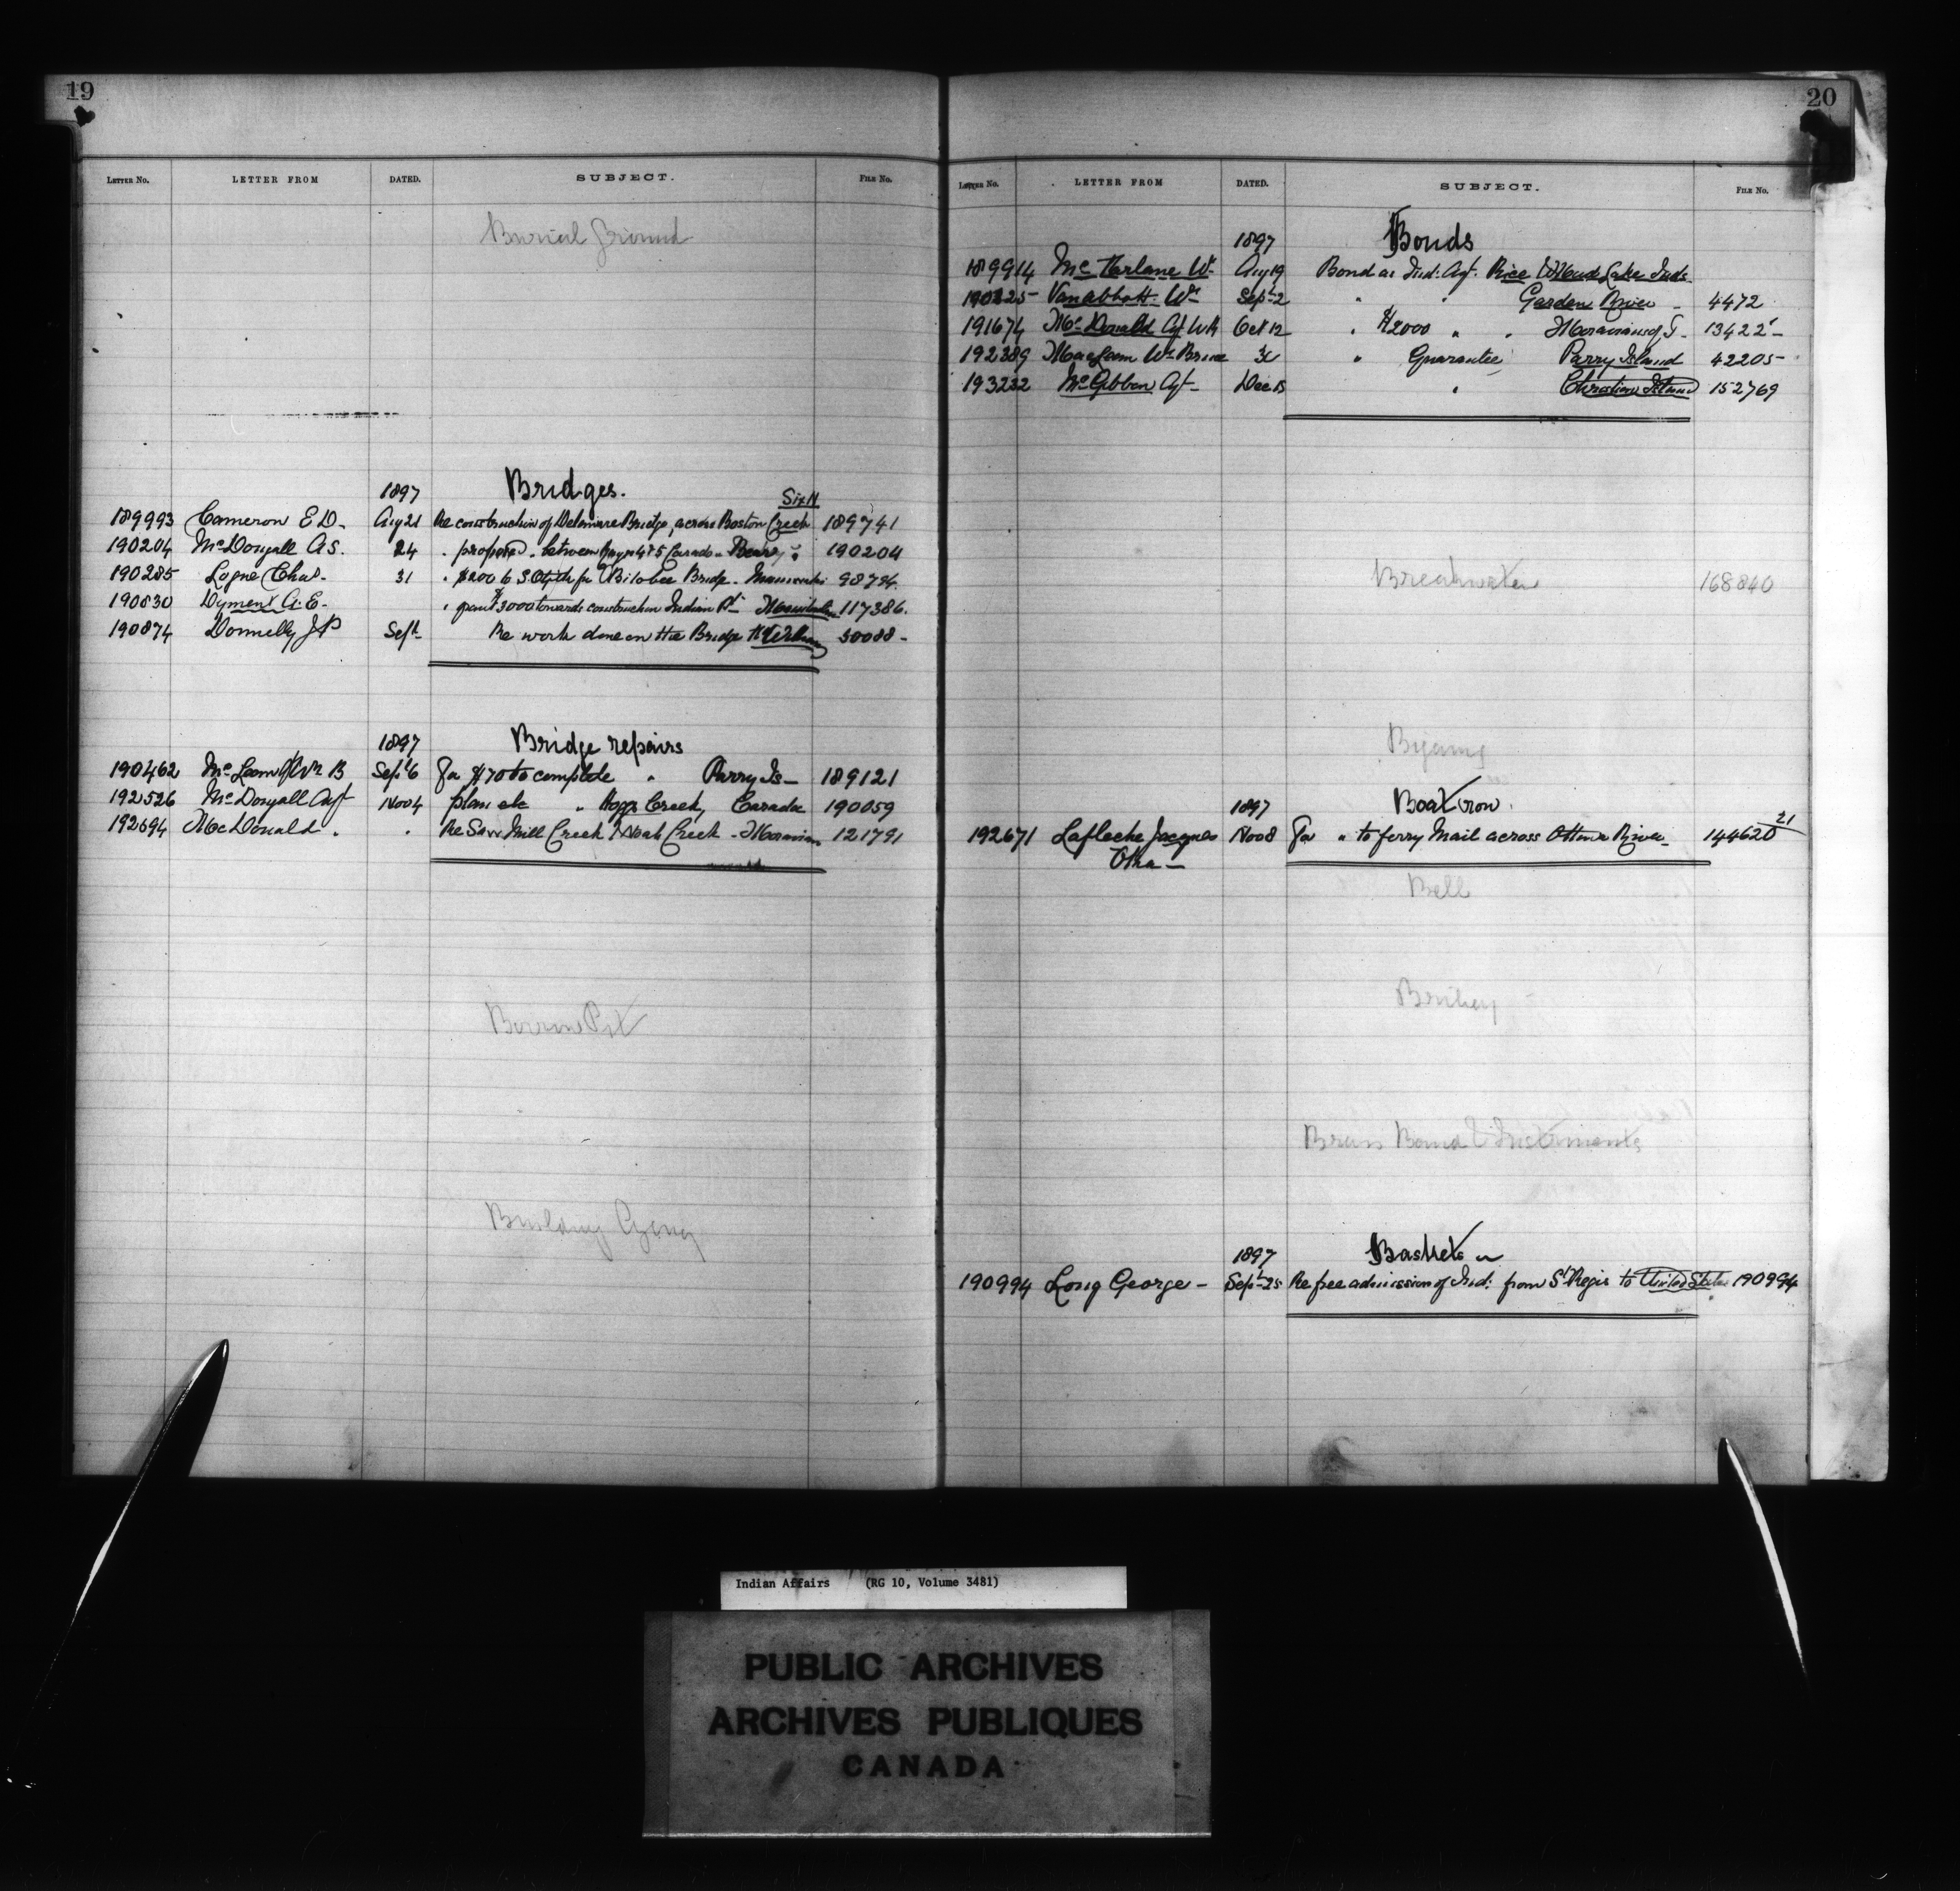 19
LETTER NO. LETTER FROM DATED. SUBJECT. FILE NO.
Burial Ground
1897 Bridges.
Six N
189993 Cameron E D - Aug 21 Re construction of Delaware Bridge, across Boston Creek 189741
190204 McDougall A S. 24 " proposed " between 4 & 5 Carado - 190204
190285 Logue Chas. 31 " $200 to for Bitobee Bridge - Maniwaki 98794
190830 Dyment A. E. " grant $3000 towards construction Indian Pt - 117386.
190874 Donnelly J P Sept Re work done on the Bridge Ft William 30088 -
1897 Bridge repairs
190462 Wm B Sept 6 For $70 to complete " Parry Is - 189121
192526 McDougall Agt Nov 4 plan etc " Hogg Creek, Caradoc 190059
192694 McDonald " " Re Saw Mill Creek & Noah Creek - Moravian 121791
Burrow Pit
Building
20
LETTER NO. LETTER FROM DATED. SUBJECT. FILE NO.
1897 Bonds
189914 McFarlane Wm Aug 19 Bond as Ind: Agt. Rice & Mud Lake Inds
190325 Vanabbott Wm Sept 2 " " Garden River - 4472
191674 McDonald Agt Oct 12 " $2000 " " Moravians of T - 13422 -
192389 Wm Brice " Guarantee Parry Island 42205 -
193232 McGibbon Agt - Dec 15 " Christian Island 152769
Breakwater 168840
Bigamy
1897 Boat row.
192671 Lafleche Jacques Nov 8 For " to ferry Mail across Ottawa River - 144620
21
Oka -
Bell
Bribery -
Brass Band & Instruments
1897 Baskets
190994 Long George - Sept 25 Re free admission of Ind: from St Regis to United States 190994
Indian Affairs (RG 10, Volume 3481)
PUBLIC ARCHIVES
ARCHIVES PUBLIQUES
CANADA